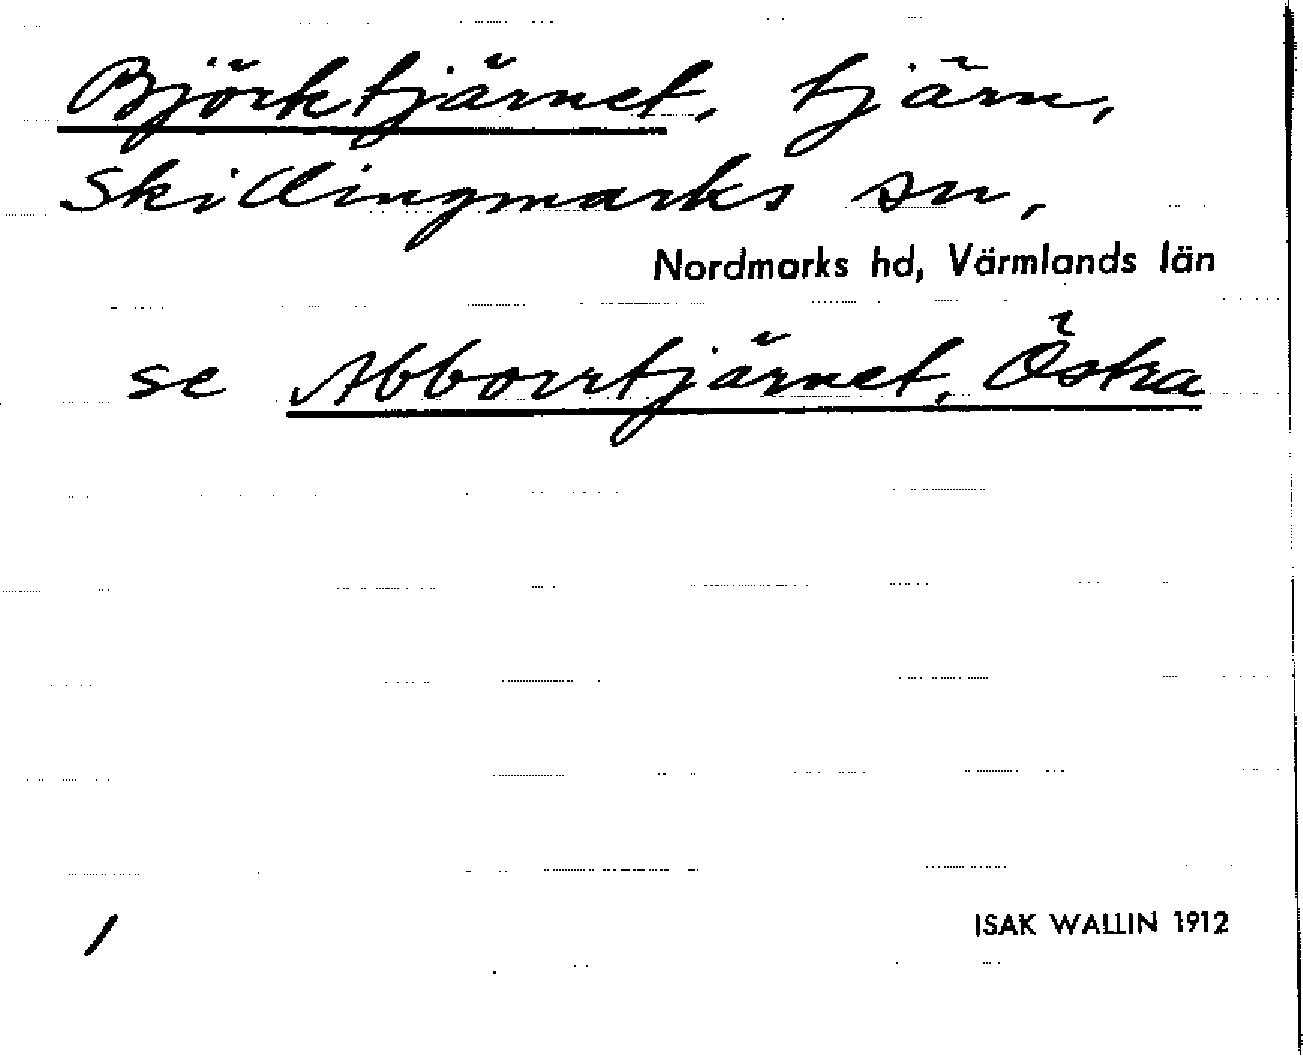 Björktjärnet, tjärn,
Skillingmarks sn,
Nordmarks hd, Värmlands län
se Abborrtjärnet, Östra
1
ISAK WALLIN 1912